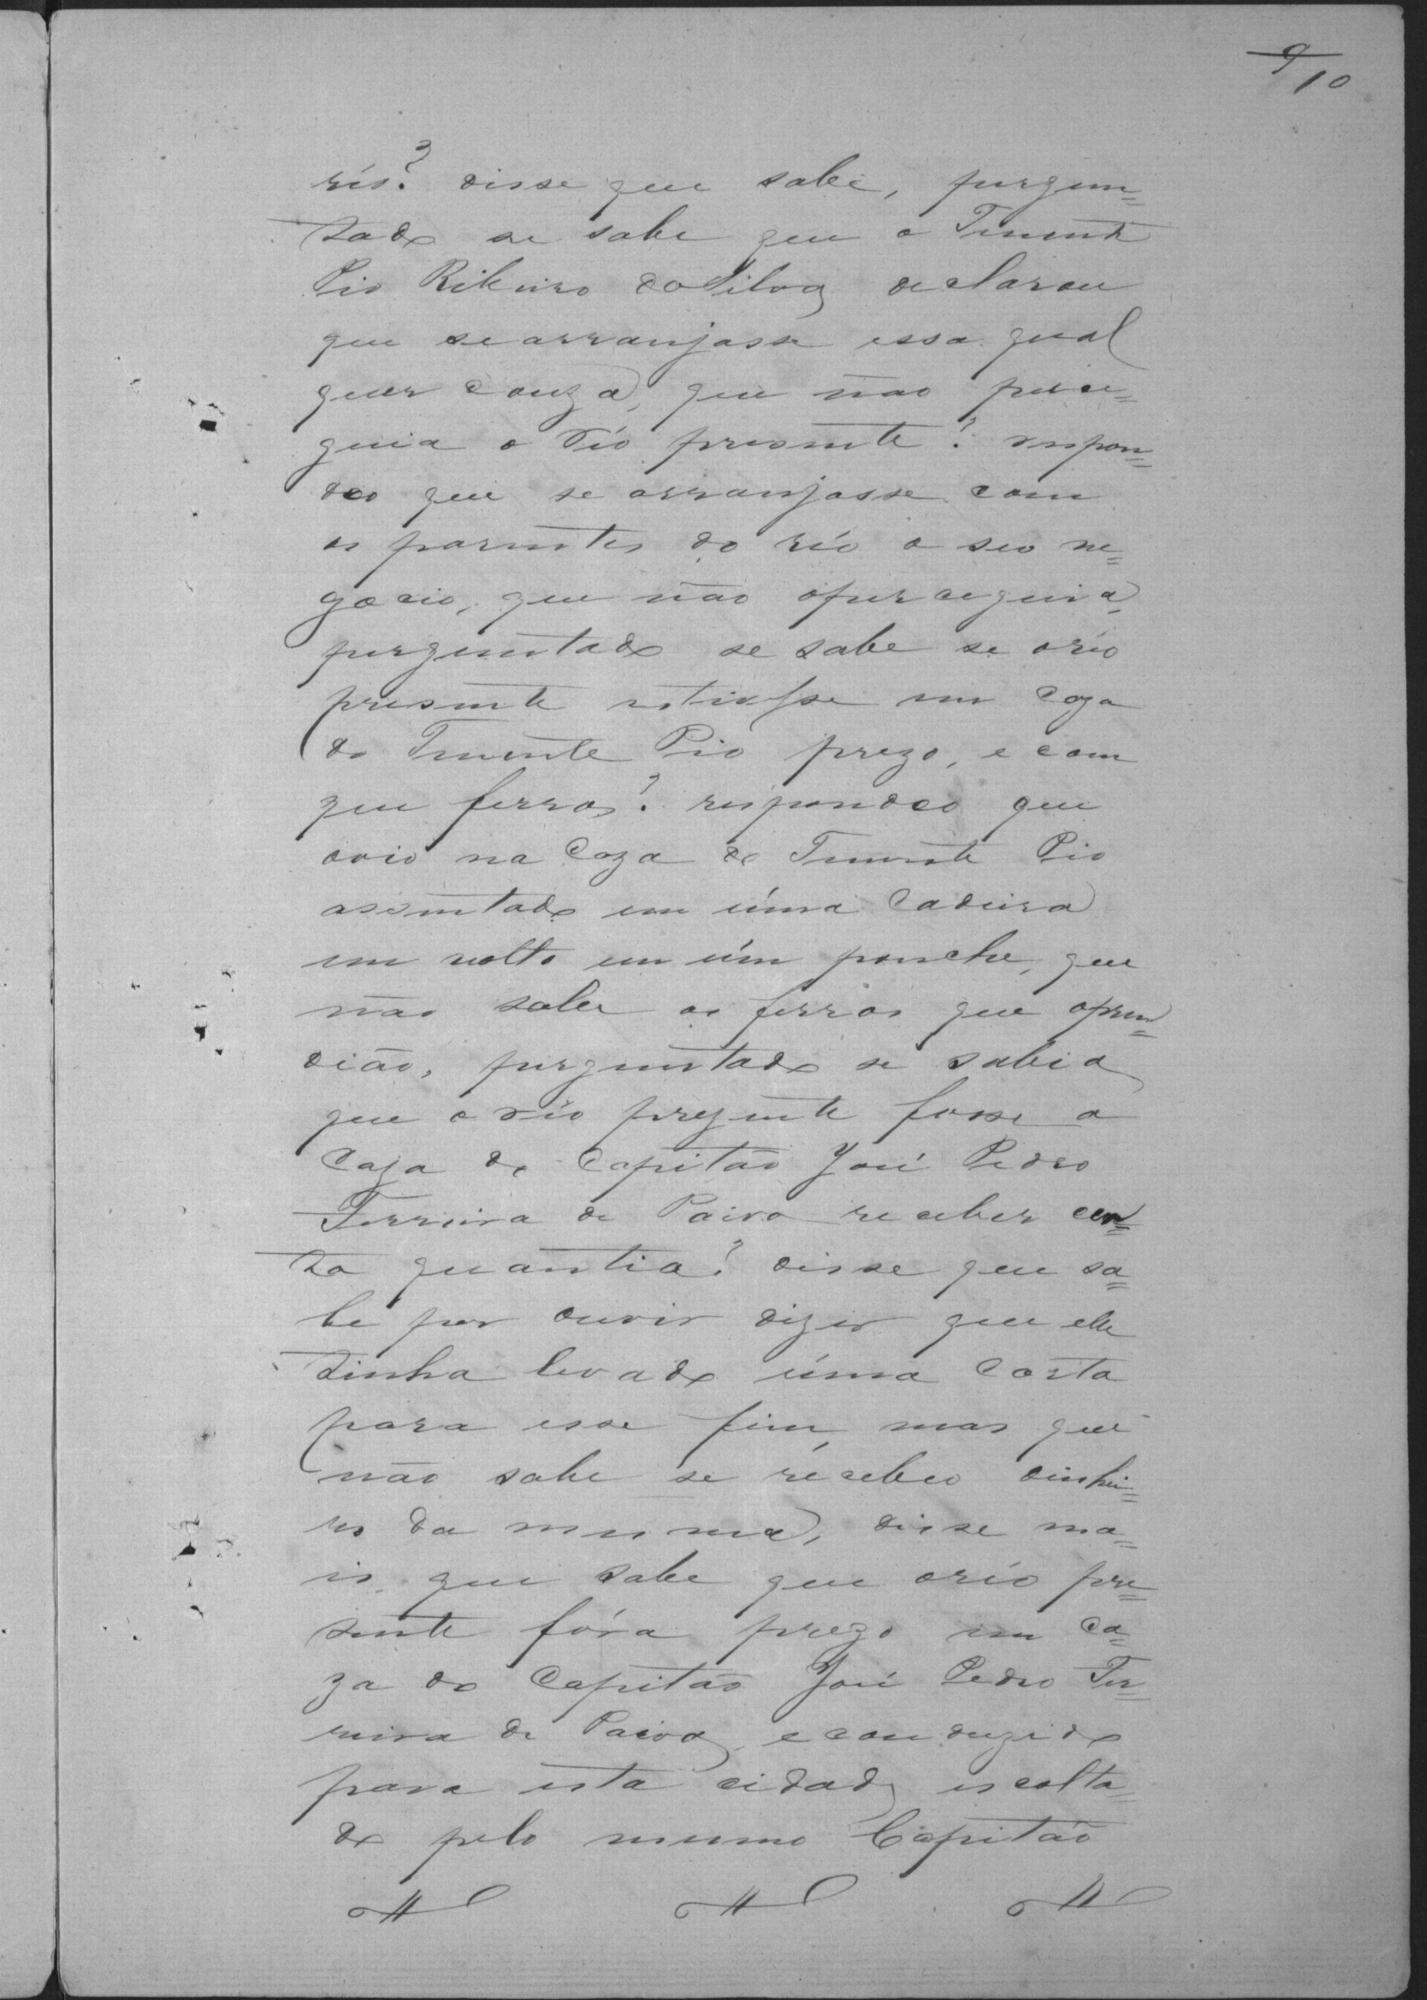 9/10
réis? disse que sabe, pergun=
tado se sabe que o Tenente
Pio Ribeiro da Silva declarou
que se arranjasse essa qual
quer couza, que não perce=
guia o réo presente? respon=
deo que se arranjasse com
os parentes do réo o seo ne=
gocio, que não opercegueria,
perguntado se sabe se oréo
presente estivesse em caza
do Tenente Pio prezo, e com
que ferros? respondeo que
ovio na caza do Tenente Pio
asentado em úma cadeira
em volto em úm ponche, que
não sabe os ferros que opren=
dião, perguntado se sabia
que o réo prezente fosse a
caza do Capitão José Pedro
Ferreira de Paiva receber cer=
ta quantia? disse que sa=
be por ouvir dizer que elle
tinha levado úma carta
para esse fim, mas que
não sabe se recebeo dinhei=
ro da mesma, disse ma=
is, que sabe que oréo pre=
sente fóra prezo em ca=
za do Capitão José Pedro Fer=
reira de Paiva, e conduzido
para esta cidade escolta=
do pelo mesmo Capitão